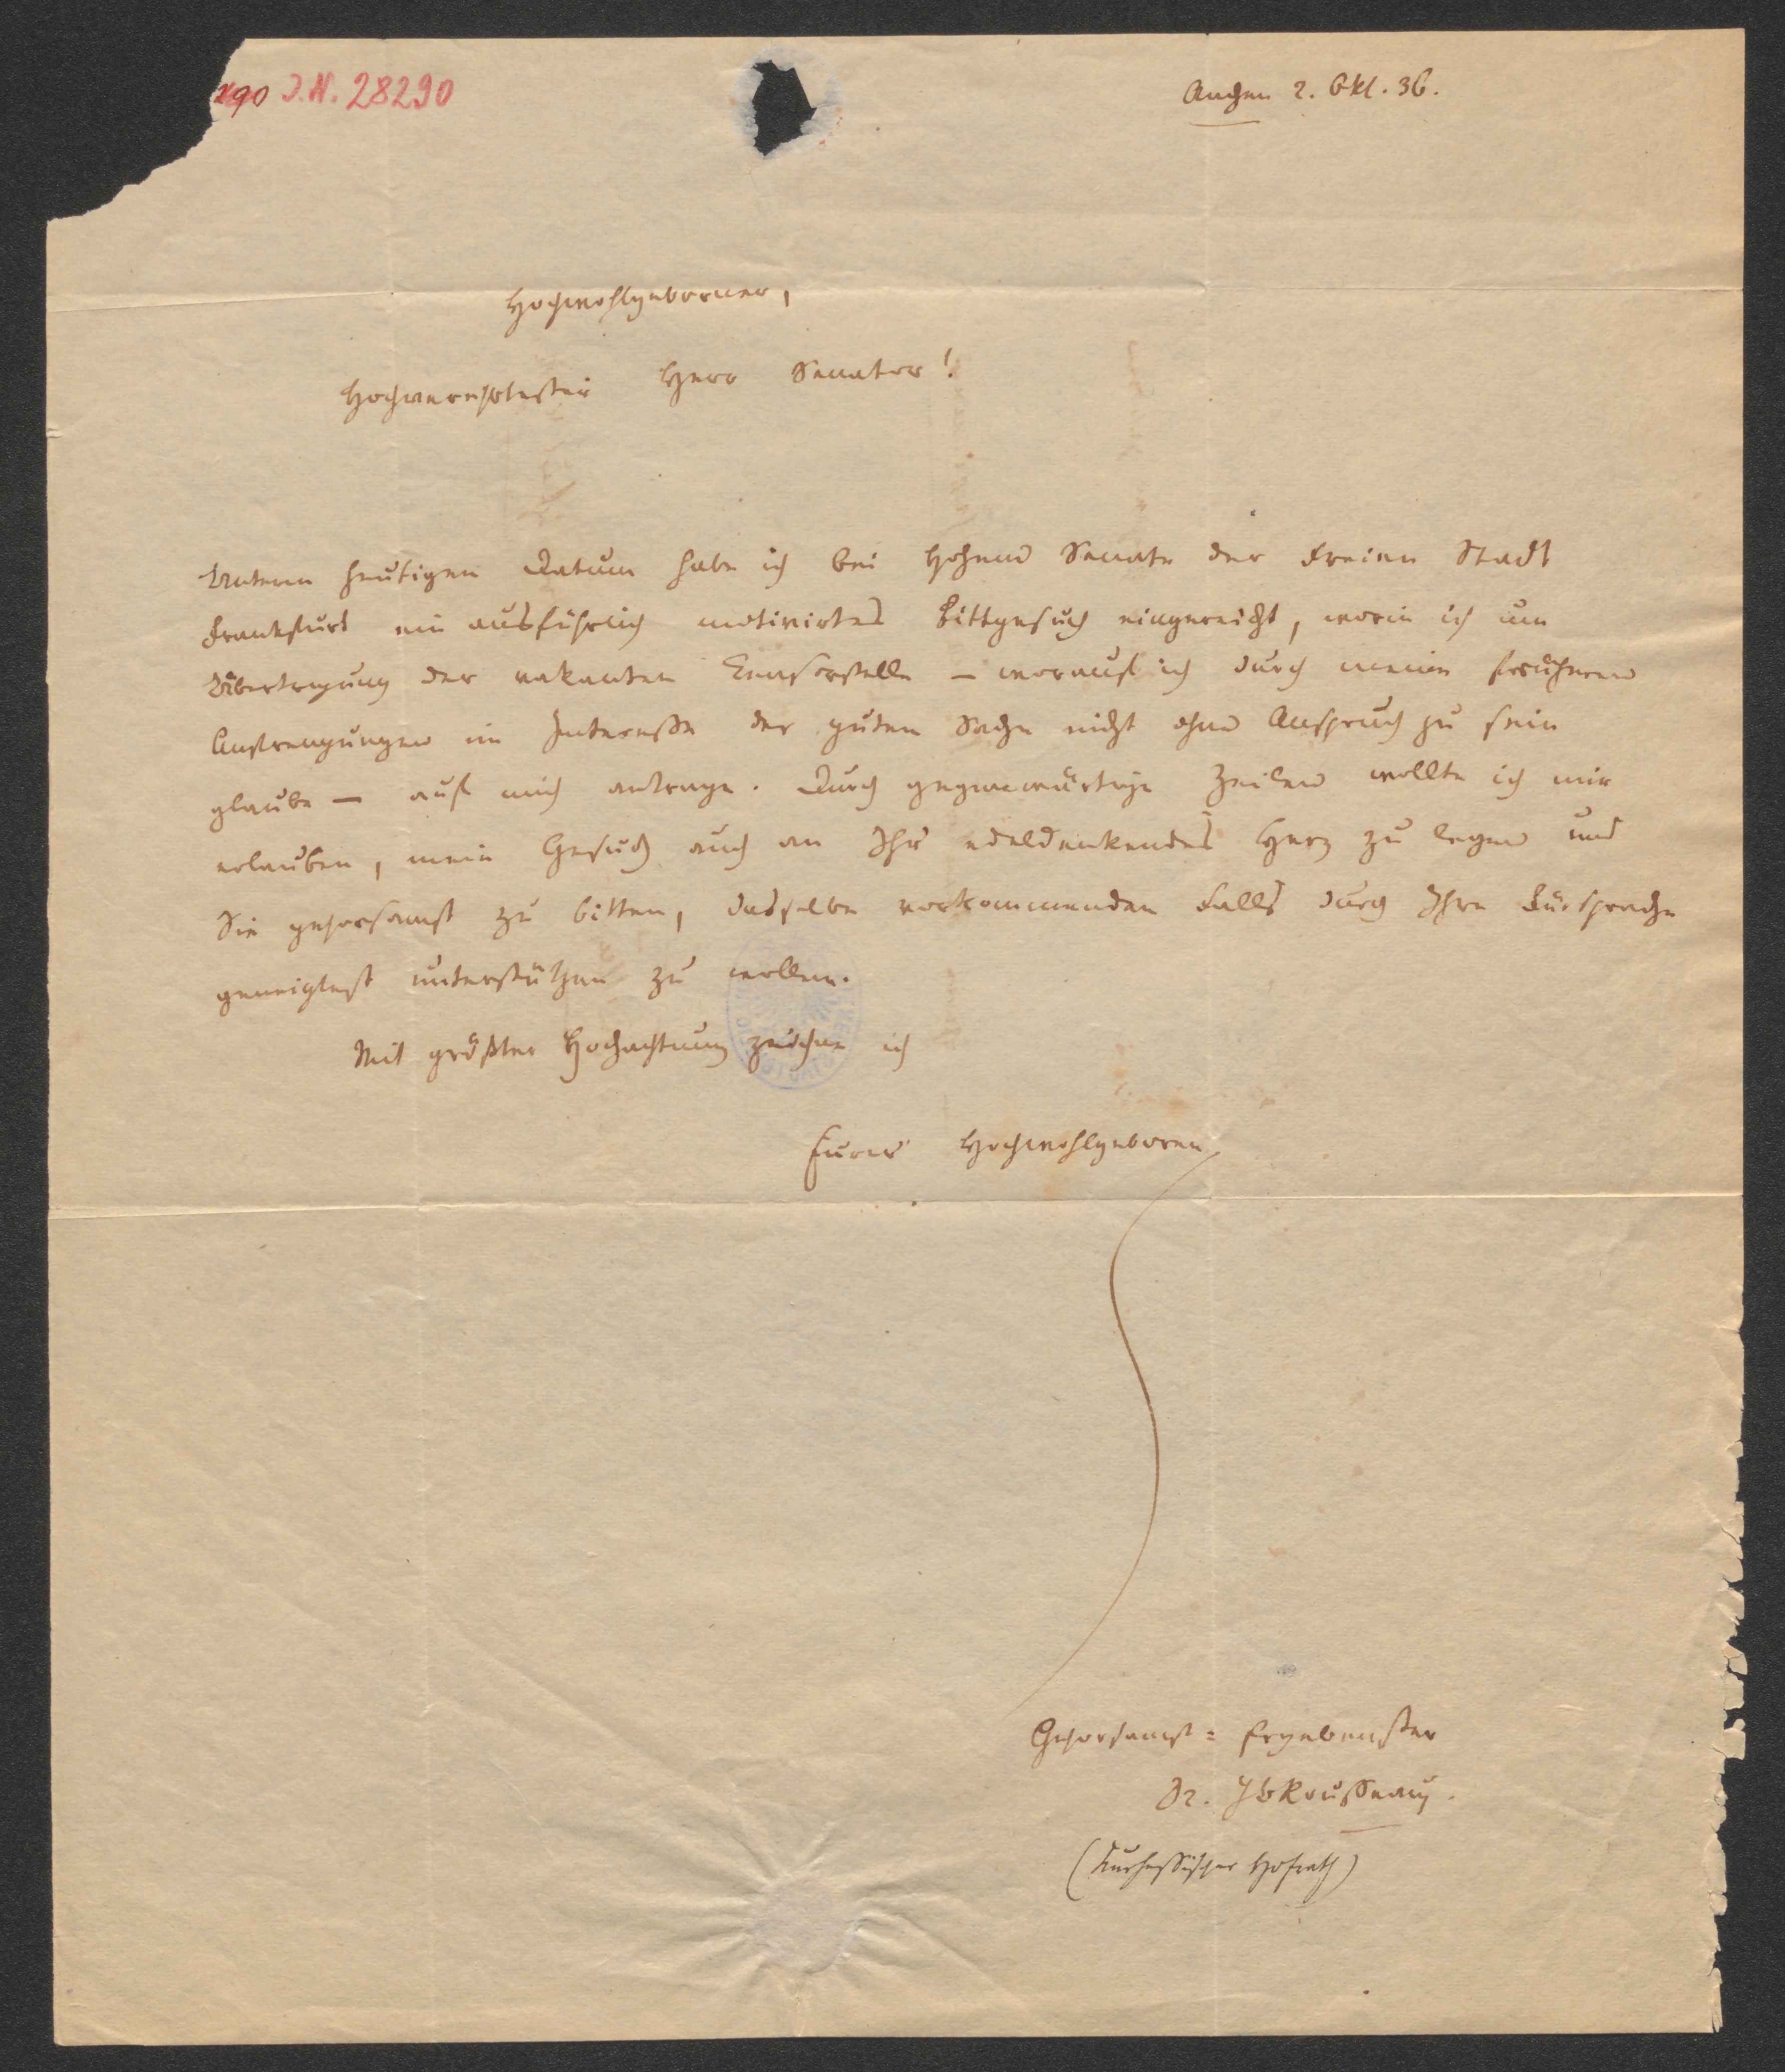 190 I.N. 28290
Aachen 2. Okt. 36.
Hochwohlgeborner,
Hochverehrtester Herr Senator!
Unterm heutigen Datum habe ich bei Hohem Senate der Freien Stadt
Frankfurt ein ausführlich motivirtes Bittgesuch eingereicht, worin ich um
Übertragung der vakanten Censorstelle – worauf ich durch meine früheren
Anstrengungen im Interesse der guten Sache nicht ohne Anspruch zu sein
glaube – auf mich antrage. Durch gegenwärtige Zeilen wollte ich mir
erlauben, mein Gesuch auch an Ihr edeldenkendes Herz zu legen und
Sie gehorsamst zu bitten, dasselbe vorkommenden Falls durch Ihre Fürsprache
geneigtest unterstützen zu wollen.
Mit größter Hochachtung zeichne ich
Eurer Hochwohlgeboren
Gehorsamst=Ergebenster
Dr. JB Rousseau.
(Kurhessischer Hofrath)